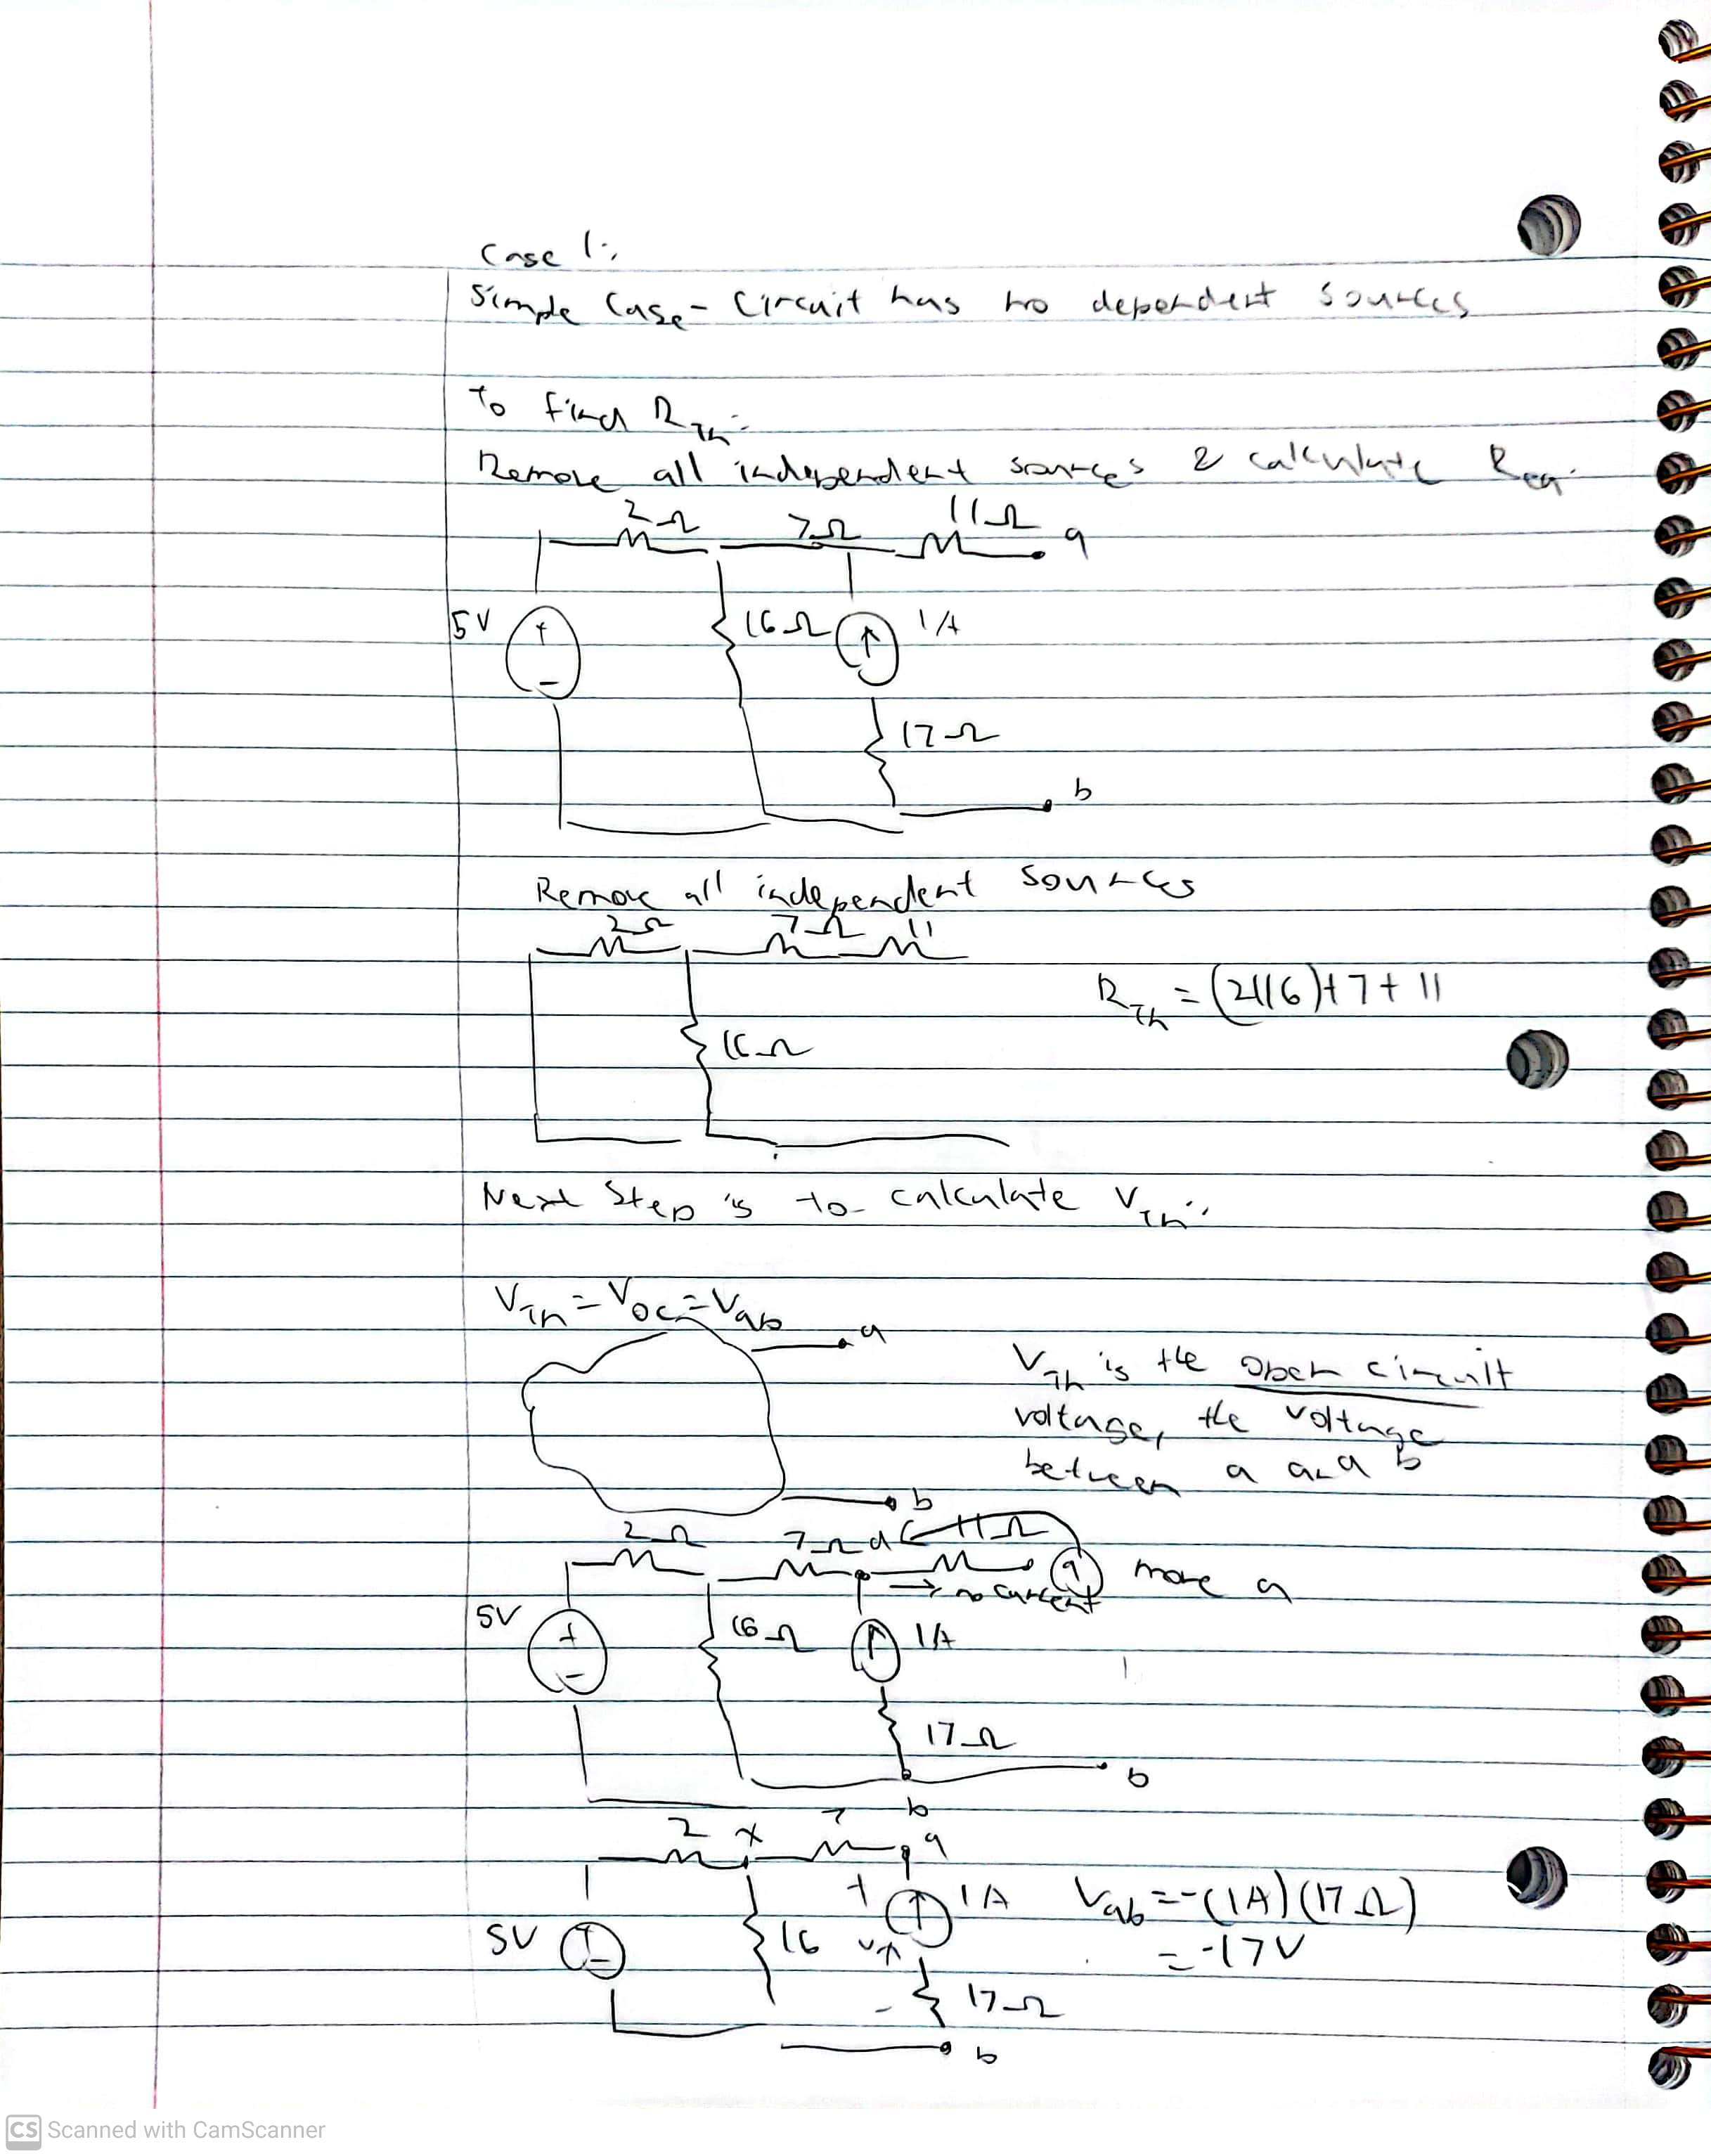 Case 1:
Simple Case - Circuit has no dependent sources
To find R_Th:
Remove all independent sources & calculate Req.
2Ω 7Ω 11Ω a
5V + - 16Ω 1A
17Ω
b
Remove all independent sources
2Ω 7Ω 11
R_Th = (2||16)+7+11
16Ω
Next Step is to calculate V_Th:
V_Th = V_OC = V_ab
a
V_Th is the open circuit
voltage, the voltage
between a and b
b
2Ω 7Ω a 11Ω a move a
→ no current
5V + - 16Ω 1A
17Ω
b
b
2 x 7 a
5V + - 16 + 1A V_ab = -(1A)(17Ω)
= -17V
- 17Ω
b
CS Scanned with CamScanner